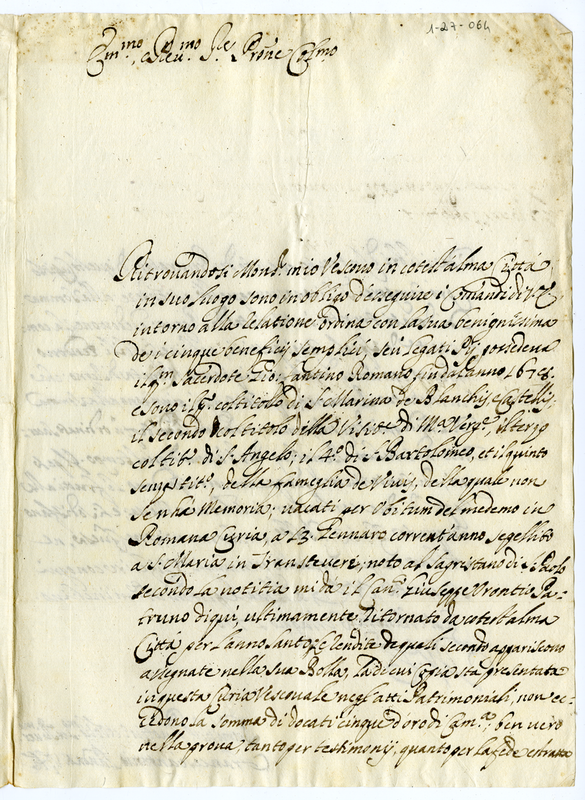 1-27-064
Em.mo e Rev.mo S.re P.rone Col.mo
Ritrovandosi Mons.r mio Vescovo in cotest'alma Città,
in suo luogo sono in obligo d'eseguire i Comandi di V.E.
intorno alla Relatione ordina con la sua benignissima
de i cinque beneficij semplici, seu legati Pij possedeva
il q.m Sacerdote Gio: Santino Romano fin dall'anno 1678.
e sono il p.o col titolo di S. Marina de Blanchis
il secondo col titolo della Visit.e di M.a Verg.e, il terzo
col tit.o di S. Angelo, il 4.o di S. Bartolomeo, et il quinto
senza tit.o, della fameglia de Vivis, della quale non
se n'hà memoria; vacati per obitum del medemo in
Romana Curia, a 13. Gennaro corrent'anno, sepellito
a S. Maria in Transtevere, noto al Sagristano di S. Paolo
secondo la notitia mi dà il Can.o Giuseppe Orontio Pa-
truno di quì, ultimamente ritornato da cotest'alma
Città per l'anno santo. Le rendite de quali secondo appariscono
assegnate nella sua Bolla, la di cui Copia stà presentata
in questa Curia Vescovale negl'atti Patrimoniali, non ec-
cedono la somma di docati cinque d'oro di Cam.a, ben vero
nella prova, tanto per testimonij, quanto per la fede estratta